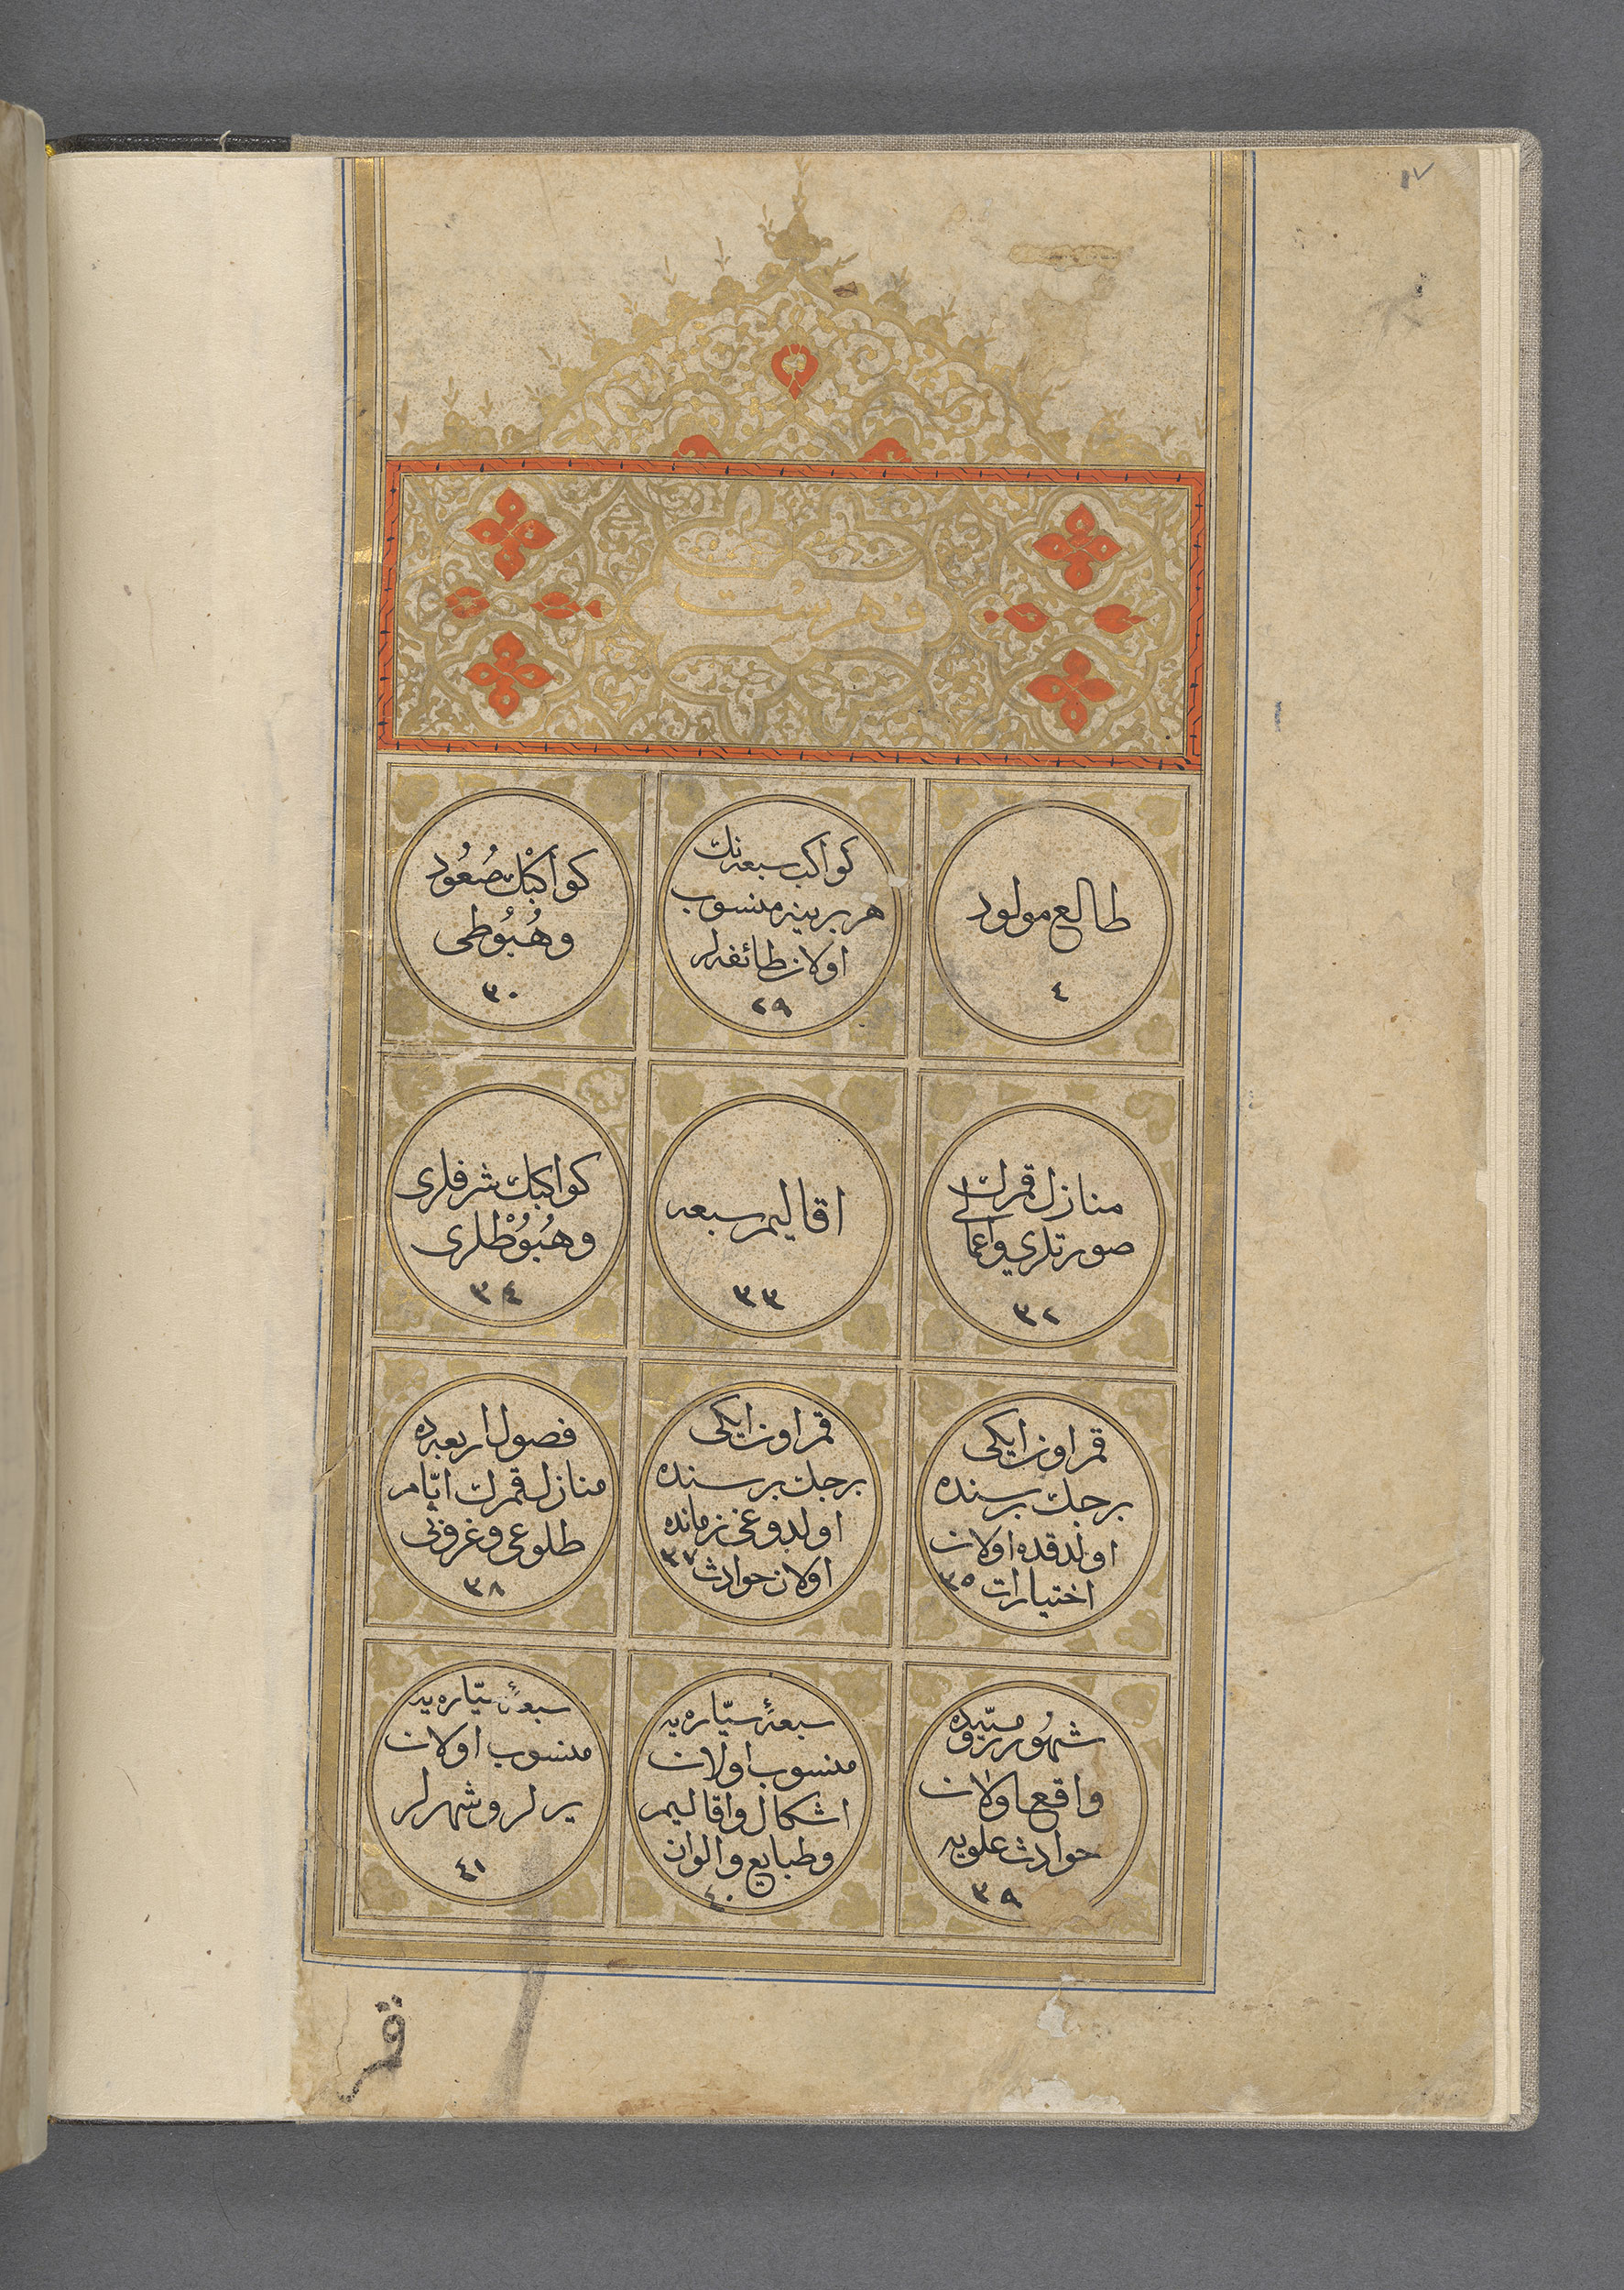 ١٧
فهرست
طالع مولود
٤
كواكب سبعه نك
هر برينه منسوب
اولان طائفه لر
٢٩
كواكبك صُعُود
وهُبُوطى
٣٠
منازل قمرك
صورتلري واعمالى
٣٢
اقاليم سبعه
٣٣
كواكبك شرفلرى
وهُبُوْطْلرى
٣٤
قمر اون ايكى
برجك برسنده
اولدقده اولان
اختيارات ٣٥
قمر اون ايكى
برجك برسنده
اولدوغى زمانده
اولان حوادث ٣٧
فصول اربعه ده
منازل قمرك ايّام
طلوعى وغروبى
٣٨
شهُور
واقع اولان
حوادث علويه
٣٩
سبعهٔ سيّاره يه
منسوب اولان
اشكال واقاليم
وطبايع والوان
٤٠
سبعهٔ سيّاره يه
منسوب اولان
يرلر وشهرلر
٤١
قمر